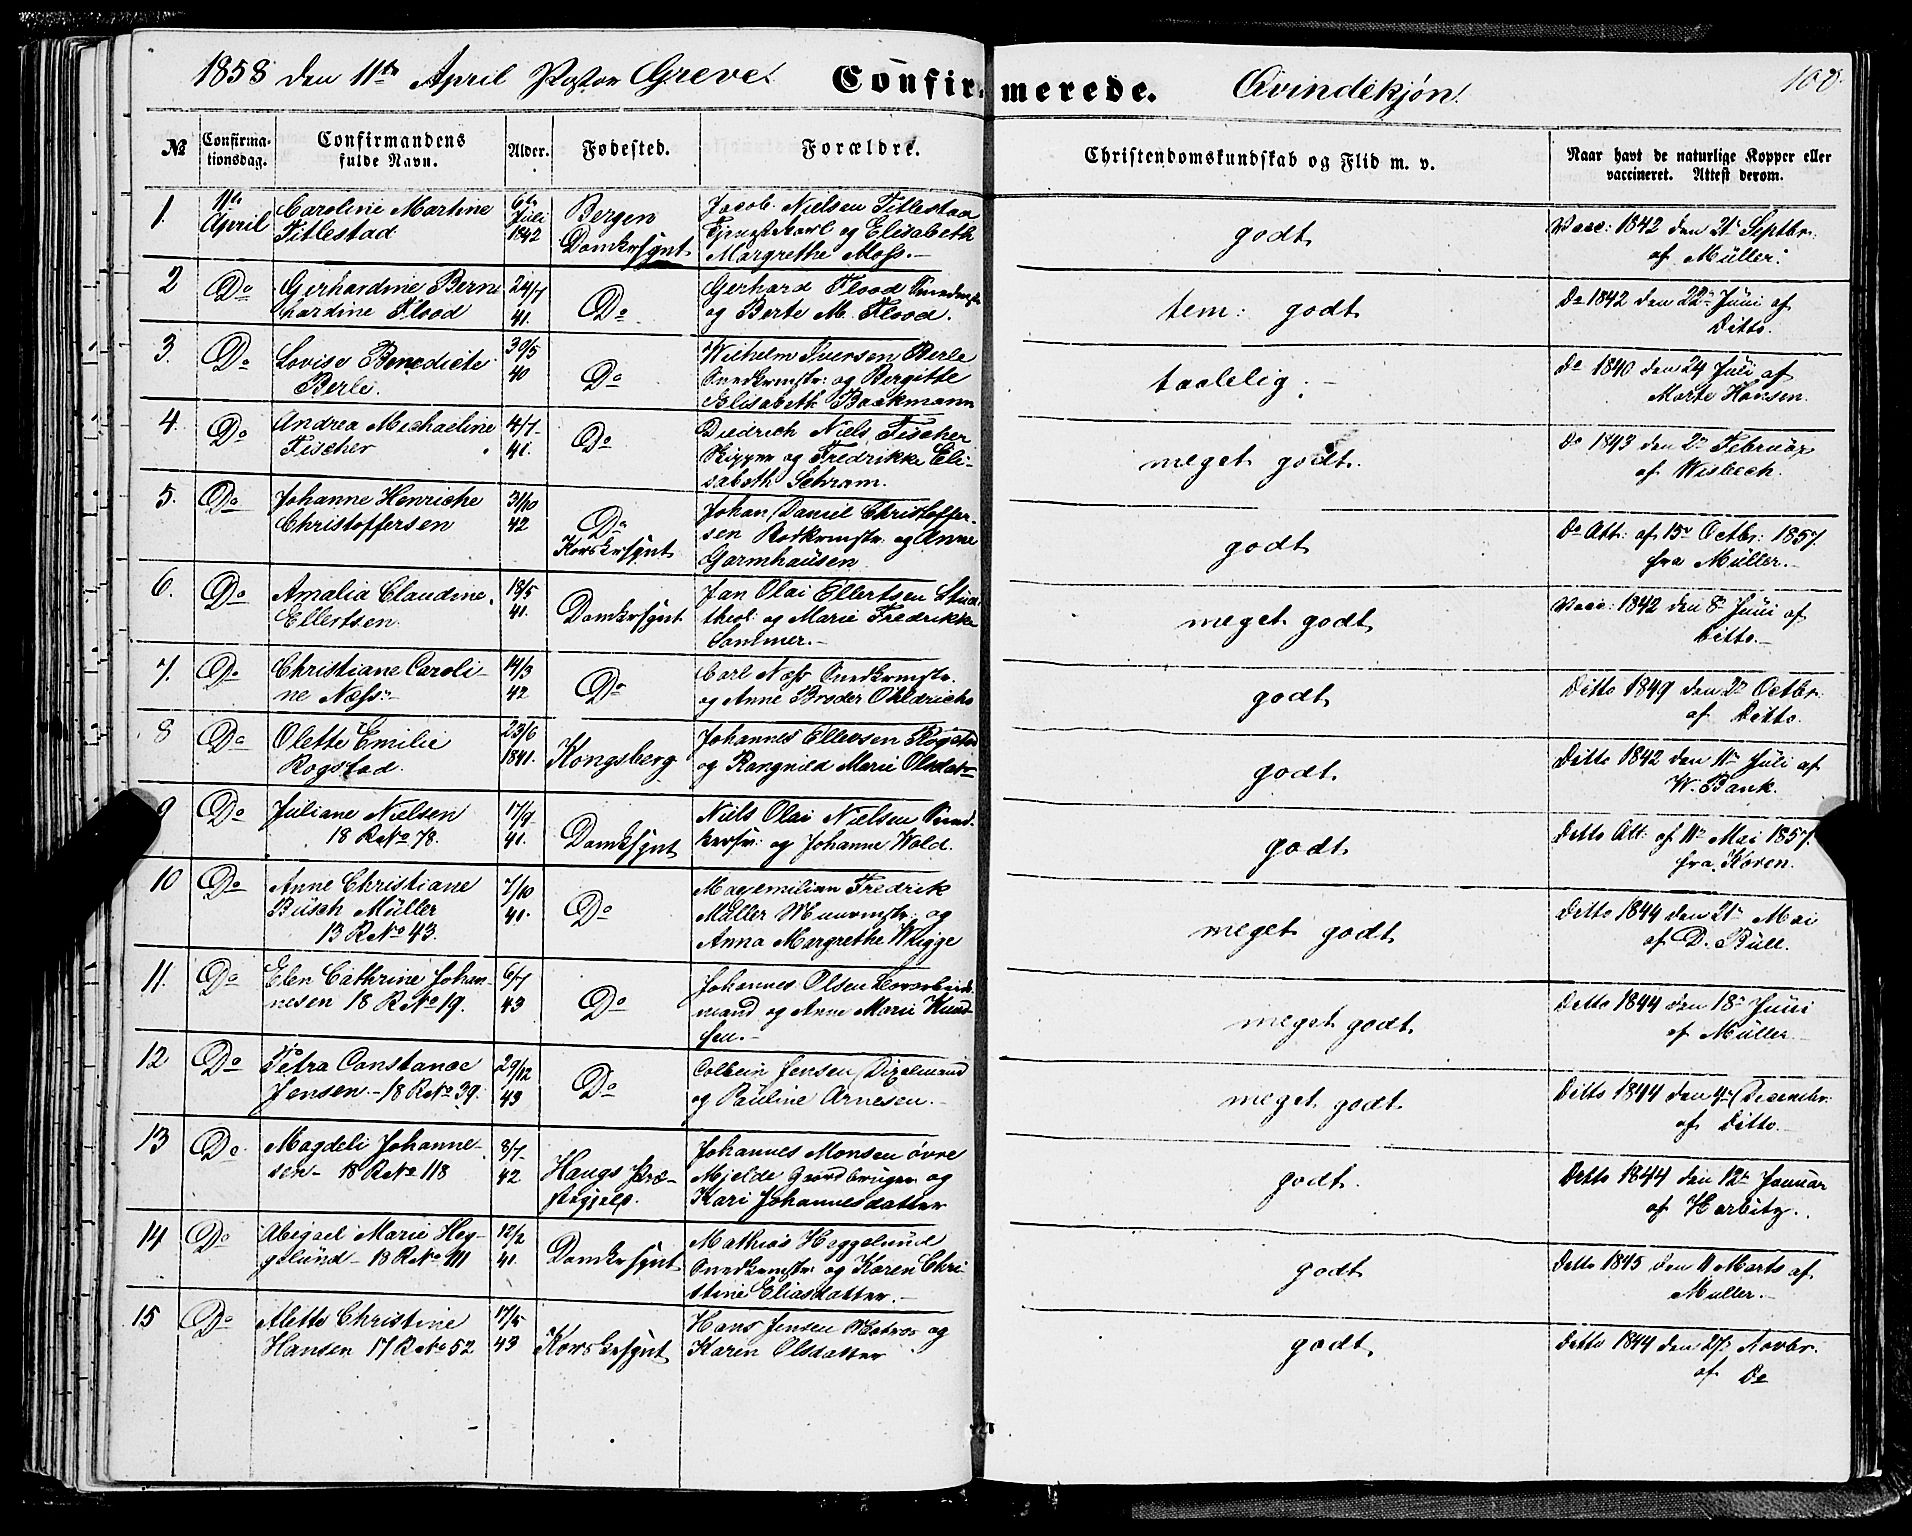 1858 den 11te April Pastor Greve. Confirmerede. Qvindekjøn. 100.
№ Confirma-tionsdag. Confirmandens fulde Navn. Alder. Fødested. Forældre. Christendomskundskab og Flid m. v. Naar havt de naturlige Kopper eller vaccineret. Attest derom.
1. 11te April
Caroline Martine
Titlestad
6te Juli 1842
Bergen
Domkrsgnt
Jacob Nielsen Titlestad
og Elisabeth
Margrethe Moss.
godt
Vacc: 1842 den 21 Septbr:
af Müller.
2 Do
Gerhardine Bern
hardine Flood
24/7 41.
Do
Gerhard Flood
og Berte M. Flood.
tem: godt
Do 1842 den 22de Juni af
Ditto.
3. Do
Lovise Benedicte
Berle.
30/5 40
Do
Wilhelm Iversen Berle
Snedkrmstr: og Bergitte
Elisabeth Baekmann
taalelig.
Do 1840 den 24 Juli af
Marte Hansen.
4. Do
Andrea Michaeline
Fischer
4/7 41.
Do
Diedrich Niels Fischer
og Fredrikke Eli-
sabeth Schram.
meget godt.
Do 1843 den 2n Februar
af Wisbech.
5. Do
Johanne Henriche
Christoffersen
31/10 42
Do
Korskrsgnt
Johan Daniel Christoffer-
sen og Anne
Garmhausen
godt
Do Att: af 15n Octbr: 1857.
fra Müller.
6. Do
Amalia Claudine
Ellertsen.
18/5 41.
Domkrsgnt
Jan Olai Ellertsen Stud.
theol: og Marie Fredrikke
Sommer.
meget godt
Vacc: 1842 den 8n Juni af
Ditto.
7. Do
Christiane Caroli-
ne Næss
14/3 42
Do
Carl Næss Snedkrmstr.
og Anne Broder
godt
Ditto 1849 den 2n Octbr.
af Ditto.
8 Do
Olette Emilie
Rogstad.
23/6 1841.
Kongsberg
Johannes Ellevsen Rogstad
og Rangnild Marie Olsdatr
godt
Ditto 1842 den 11n Juli af
W. Bank.
9 Do
Juliane Nielsen
18 R No 78.
17/9 41.
Domksgnt
Niels Olai Nielsen Sned-
og Johanne Wold.
godt
Ditto Att: af 11n Mai 1857.
fra Koren.
10 Do
Anne Christiane
Büsch Müller
13 R No 43.
7/10 41.
Do
Maxemilian Fredrik
Müller Muurmstr: og
Anna Margrethe Wigge
meget godt
Ditto 1844 den 21n Mai
af D. Büll.
11. Do
Elen Cathrine Johan-
nesen 18 R No 19.
6/7 43
Do
Johannes Olsen
mand og Anne Marie Knud
sen.
meget godt
Ditto 1844 den 18n Juni
af Müller.
12 Do
Petra Constance
Jensen. - 18 R No 39.
29/12 43
Do
Colbein Jensen
og Pauline Arnesen.
meget godt
Ditto 1844 den 4n December
af Ditto.
13 Do
Magdeli Johanne-
sen - 18 R No 118
3/7 42
Haugs Præ-
stegjeld.
Johannes Monsen øvre
Mjelde Gaardbruger og
Kari Johannesdatter
godt.
Ditto 1844 den 12n Januar
af Harbitz.
14 Do
Abigael Marie Heg-
gelund - 13 R No 111
12/2 41.
Domkrsgnt
Mathias Heggelund
Snedkrmstr: og Karen Chri-
stine Eliasdatter.
godt
Ditto 1845 den 11 Marts af
Muller.
15 Do
Alette Christine
Hansen 17 R No 52
17/5 43
Korskrsgnt
Hans Jensen Matros og
Karen Olsdatter
godt
Ditto 1844 den 27. Novbr.
af Do